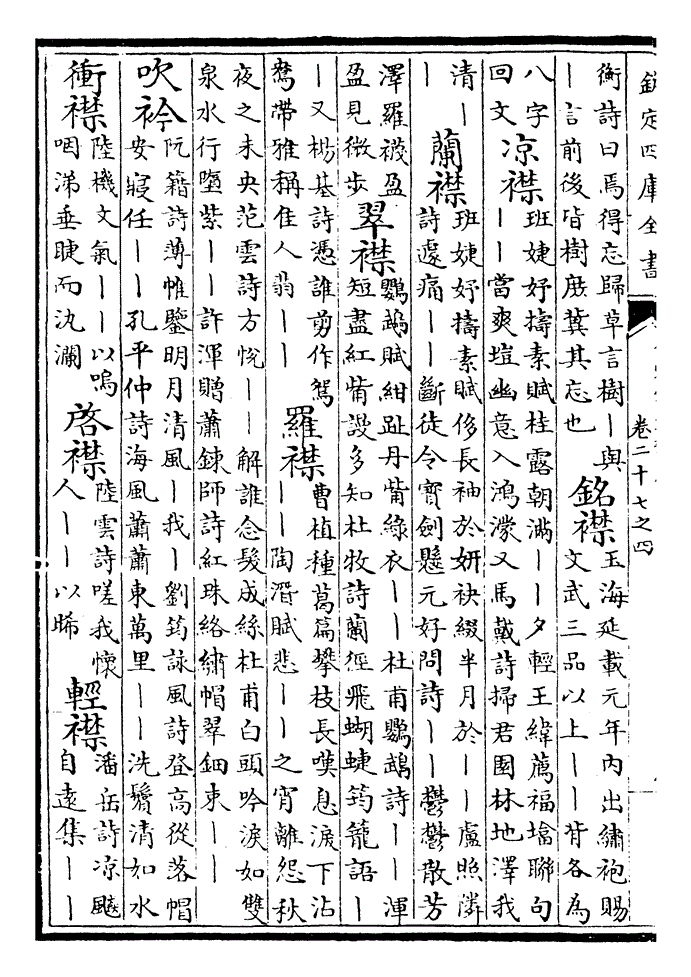 欽定四庫全書
卷二十七之四
衡詩曰焉得忘歸草言樹｜與
｜言前後皆樹庶冀其忘也
銘襟
玉海延載元年内出繡袍賜
文武三品以上｜｜背各為
八字
回文
凉襟
班婕妤擣素賦桂露朝滿｜｜夕輕王緯薦福塲聯句
｜｜當爽塏幽意入鴻濛又馬戴詩掃君園林地澤我
清｜
｜
蘭襟
班婕妤擣素賦侈長袖於妍袂綴半月於｜｜盧照隣
詩遽痛｜｜斷徒令寳劍懸元好問詩｜｜鬱鬱散芳
澤羅襪盈
盈見微步
翠襟
鸚鵡賦紺趾丹觜綠衣｜｜杜甫鸚鵡詩｜｜渾
短盡紅觜謾多知杜牧詩蘭徑飛蝴蝶筠籠語｜
｜又楊基詩憑誰剪作鴛
鴦帶雅稱佳人翡｜｜
羅襟
曹植種葛篇攀枝長嘆息淚下沾
｜｜陶潛賦悲｜｜之宵離怨秋
夜之未央范雲詩方悅｜｜解誰念髮成絲杜甫白頭吟淚如雙
泉水行墮紫｜｜許渾贈蕭鍊師詩紅珠絡繡帽翠鈿束｜｜
吹衿
阮籍詩薄帷鑒明月清風｜我｜劉筠詠風詩登高從落帽
安寢任｜｜孔平仲詩海風蕭蕭東萬里｜｜洗鬢清如水
衝襟
陸機文氣｜｜以嗚
咽涕垂睫而汍瀾
啓襟
陸雲詩嗟我懷
人｜｜以晞
輕襟
潘岳詩凉飇
自遠集｜｜